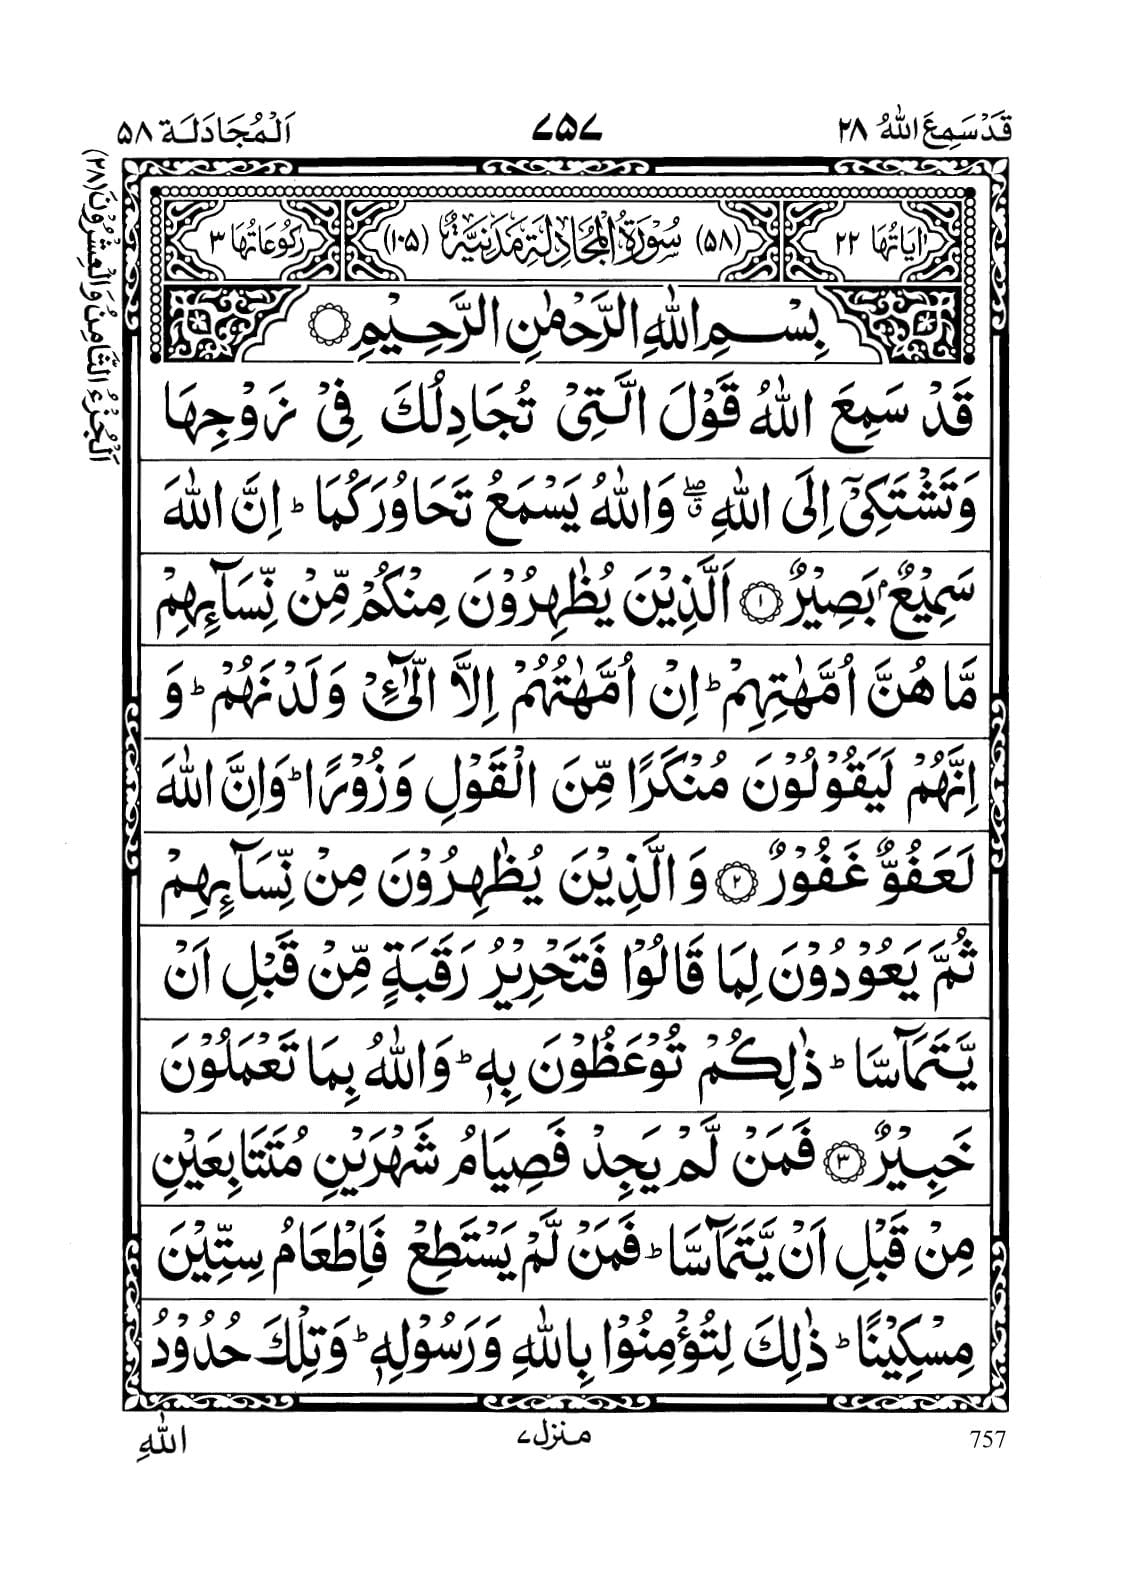 قَدْ سَمِعَ اللّٰهُ ٢٨
٧٥٧
اَلْمُجَادَلَة ٥٨
اٰيَاتُهَا ٢٢
(٥٨) سُوْرَةُ الْمُجَادِلَةِ مَدَنِيَّةٌ (١٠٥)
رُكُوْعَاتُهَا ٣
بِسْمِ اللّٰهِ الرَّحْمٰنِ الرَّحِيْمِ
قَدْ سَمِعَ اللّٰهُ قَوْلَ الَّتِیْ تُجَادِلُكَ فِیْ زَوْجِهَا
وَتَشْتَكِیْۤ اِلَی اللّٰهِ ۖۗ وَاللّٰهُ یَسْمَعُ تَحَاوُرَكُمَا ؕ اِنَّ اللّٰهَ
سَمِیْعٌۢ بَصِیْرٌ ۝١ اَلَّذِیْنَ یُظٰهِرُوْنَ مِنْكُمْ مِّنْ نِّسَآىِٕهِمْ
مَّا هُنَّ اُمَّهٰتِهِمْ ؕ اِنْ اُمَّهٰتُهُمْ اِلَّا الّٰٓـِٔیْ وَلَدْنَهُمْ ؕ وَ
اِنَّهُمْ لَیَقُوْلُوْنَ مُنْكَرًا مِّنَ الْقَوْلِ وَزُوْرًا ؕ وَاِنَّ اللّٰهَ
لَعَفُوٌّ غَفُوْرٌ ۝٢ وَالَّذِیْنَ یُظٰهِرُوْنَ مِنْ نِّسَآىِٕهِمْ
ثُمَّ یَعُوْدُوْنَ لِمَا قَالُوْا فَتَحْرِیْرُ رَقَبَةٍ مِّنْ قَبْلِ اَنْ
یَّتَمَآسَّا ؕ ذٰلِكُمْ تُوْعَظُوْنَ بِهٖ ؕ وَاللّٰهُ بِمَا تَعْمَلُوْنَ
خَبِیْرٌ ۝٣ فَمَنْ لَّمْ یَجِدْ فَصِیَامُ شَهْرَیْنِ مُتَتَابِعَیْنِ
مِنْ قَبْلِ اَنْ یَّتَمَآسَّا ؕ فَمَنْ لَّمْ یَسْتَطِعْ فَاِطْعَامُ سِتِّیْنَ
مِسْكِیْنًا ؕ ذٰلِكَ لِتُؤْمِنُوْا بِاللّٰهِ وَرَسُوْلِهٖ ؕ وَتِلْكَ حُدُوْدُ
اَلْجُزْءُ الثَّامِنُ وَالْعِشْرُوْنَ (٢٨)
757
منزل ٧
اللّٰهِ